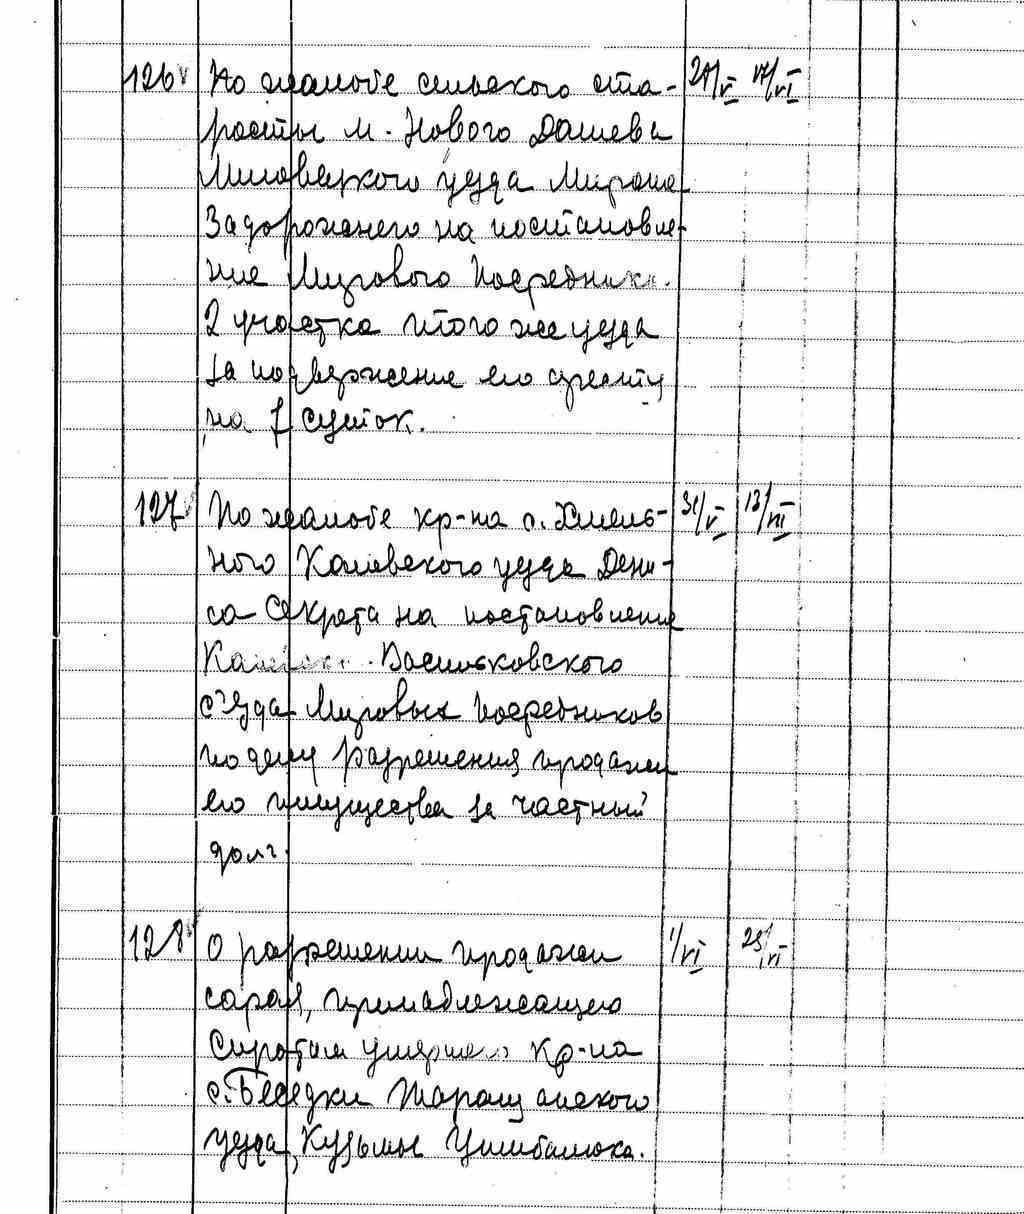 126 По жалобе сельского ста- 29/V 17/VI
росты м. Нового Дашева
Липовецкого уезда Мирона
Задорожнего на постановле-
ние Мирового Посредника
2 участка этого же уезда
за подвержение его аресту
на 7 суток.
127 По жалобе кр-на с. Хмель- 31/V 13/VII
ного Каневского уезда Дени-
са Секрета на постановление
Васильковского
с'езда Мировых Посредников
по делу разрешения продажи
его имущества за частный
долг.
128 О разрешении продажи 1/VI 25/VI
сарая, принадлежащего
сиротам умершего кр-на
с. Беседки Таращанского
уезда, Кузьмы Цимбалюка.